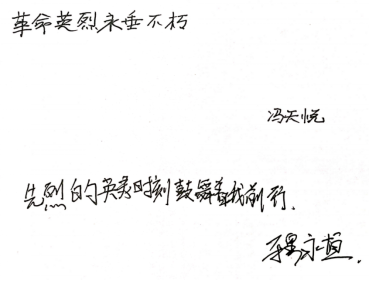 革命英烈永垂不朽
冯天悦
先烈的英灵时刻鼓舞着我前行.
程永恒.